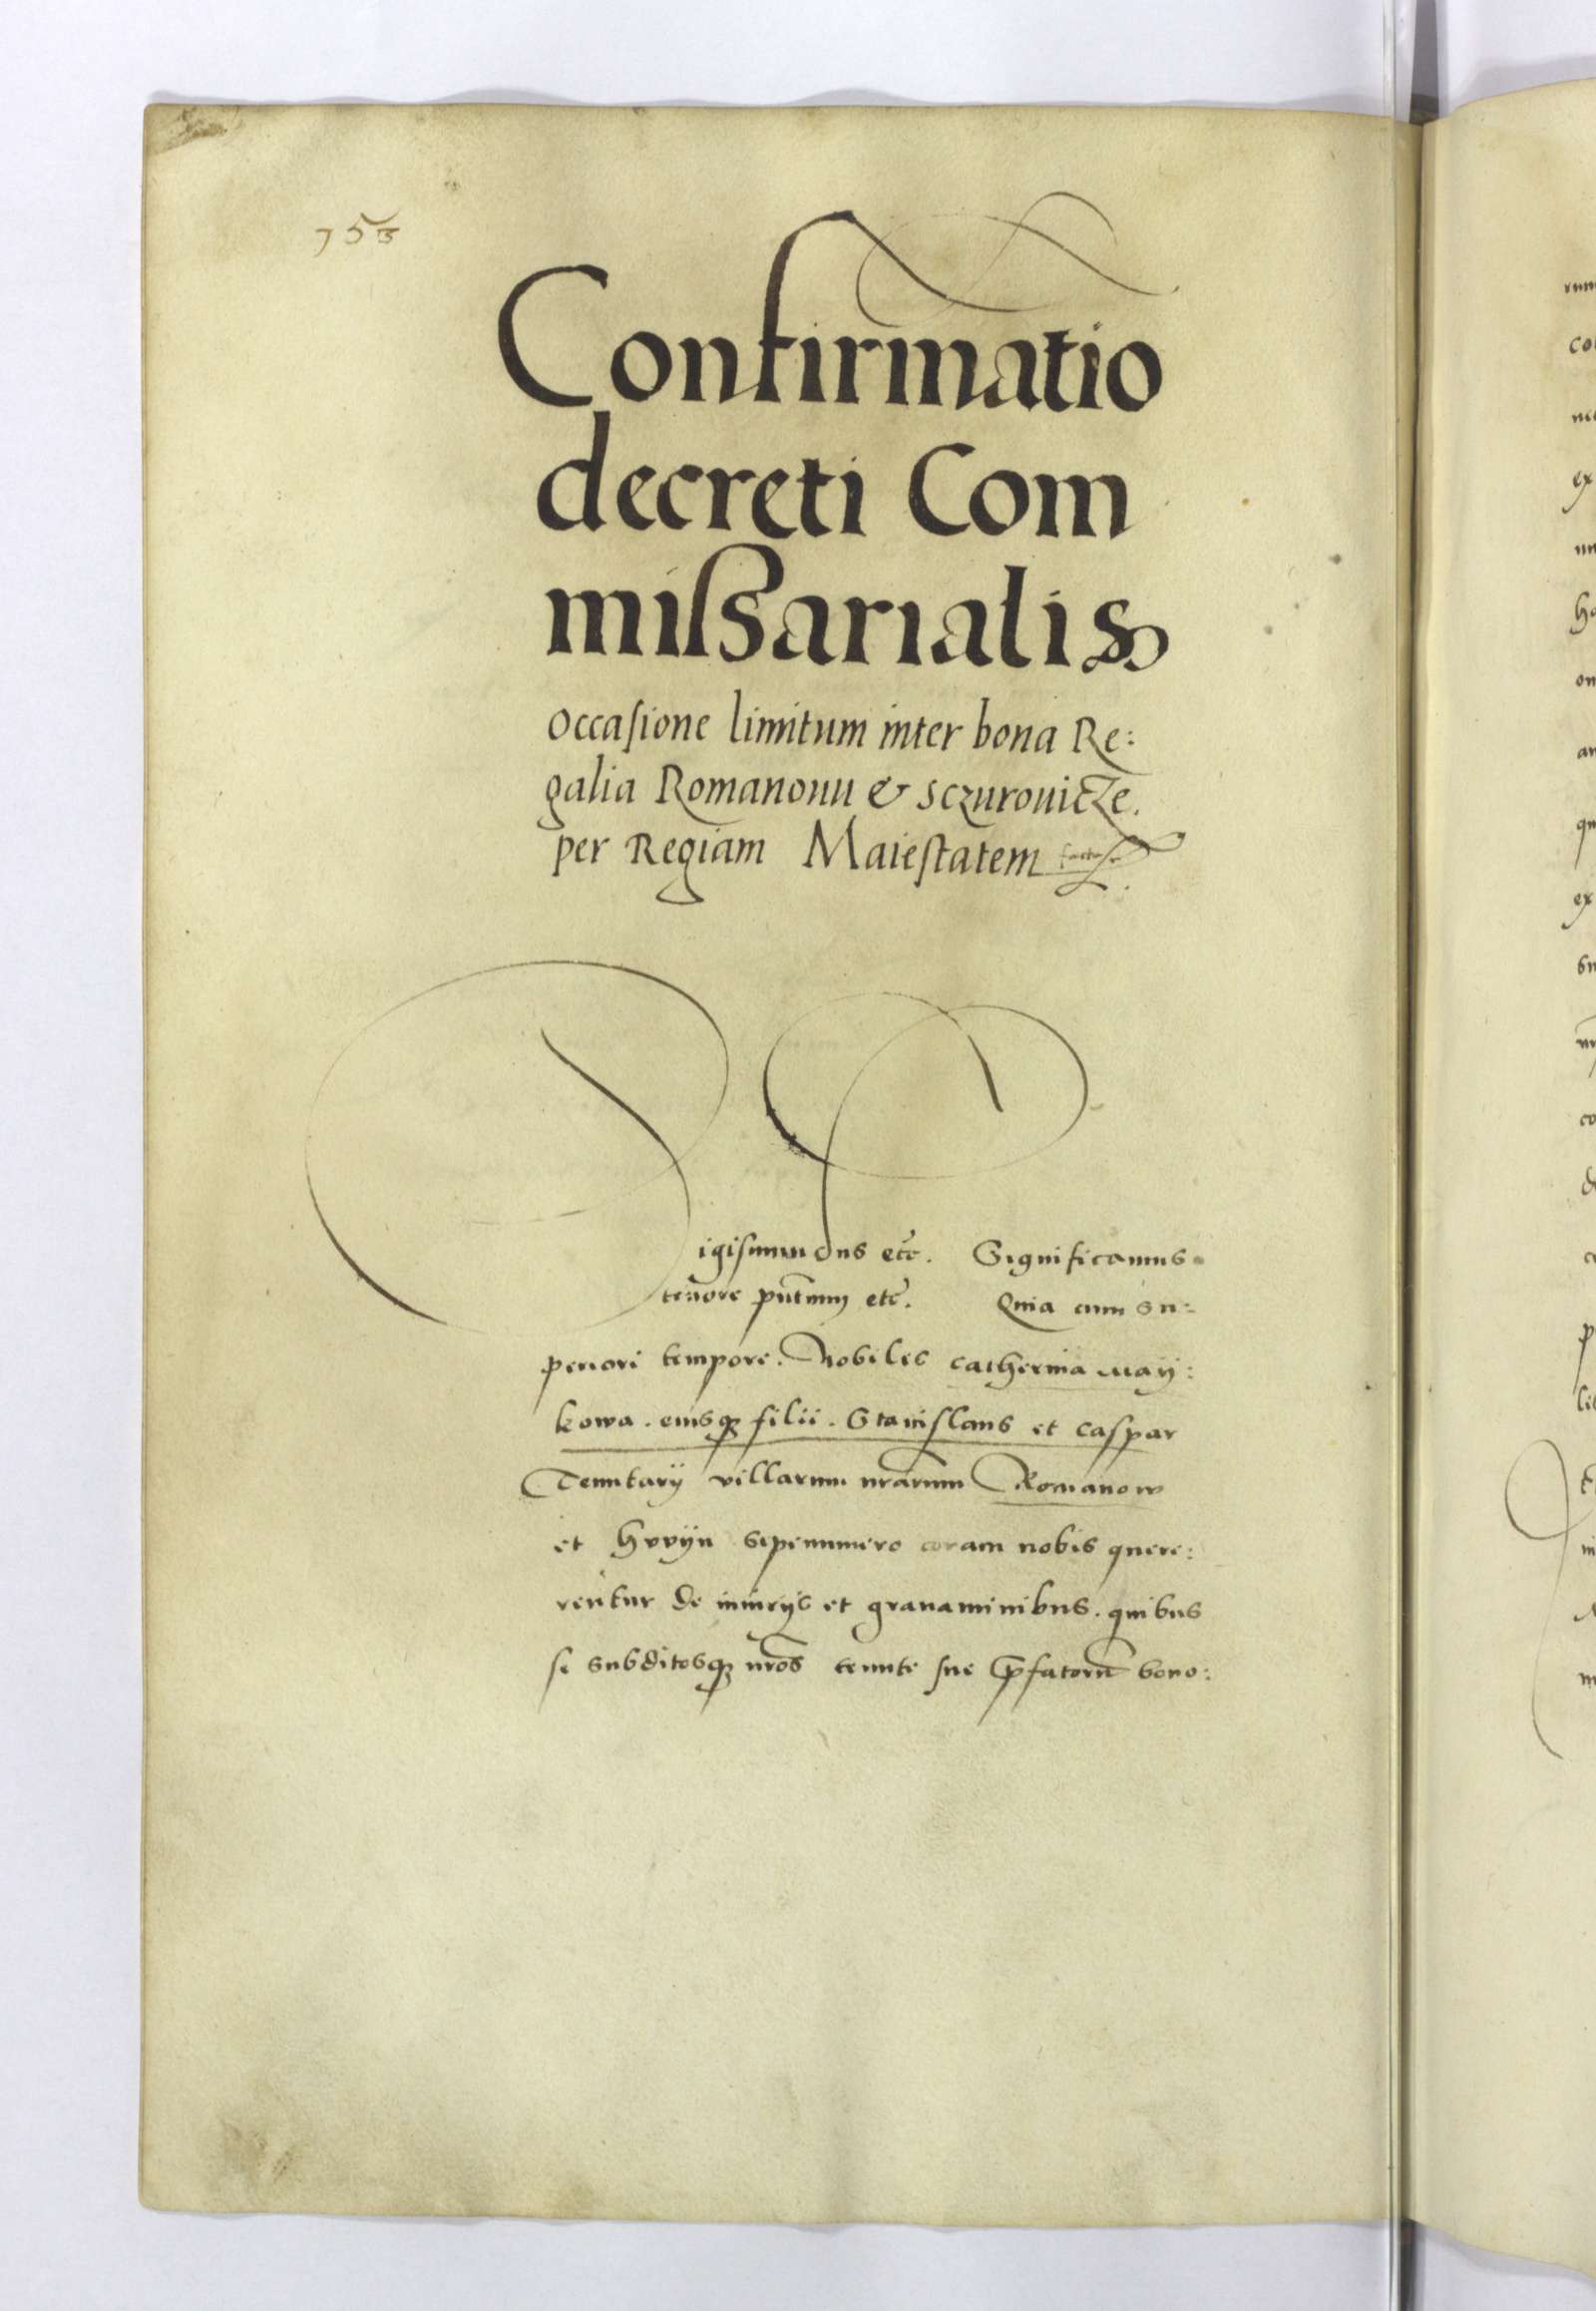 753
Confirmatio
decreti Com
mißarialis
occasione limitum inter bona Re:
galia Romanouu & sczurouicze.
per Regiam Maiestatem
igismundus etc. Significamus
tenore pntium etc. Quia cum su:
periori tempore. Nobiles catherina
kowa. eiusq filii. Stanislaus et caspar
Tenutarij villarum nrarum Romanow
et hvvijn sepenumero coram nobis quere:
rentur de iniurijs et grauaminibus. quibus
se subditosq nros tenute sue pfatorum bono: